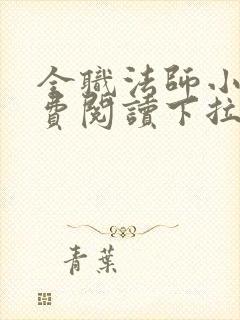 全職法師小
費閱讀下拉
青葉